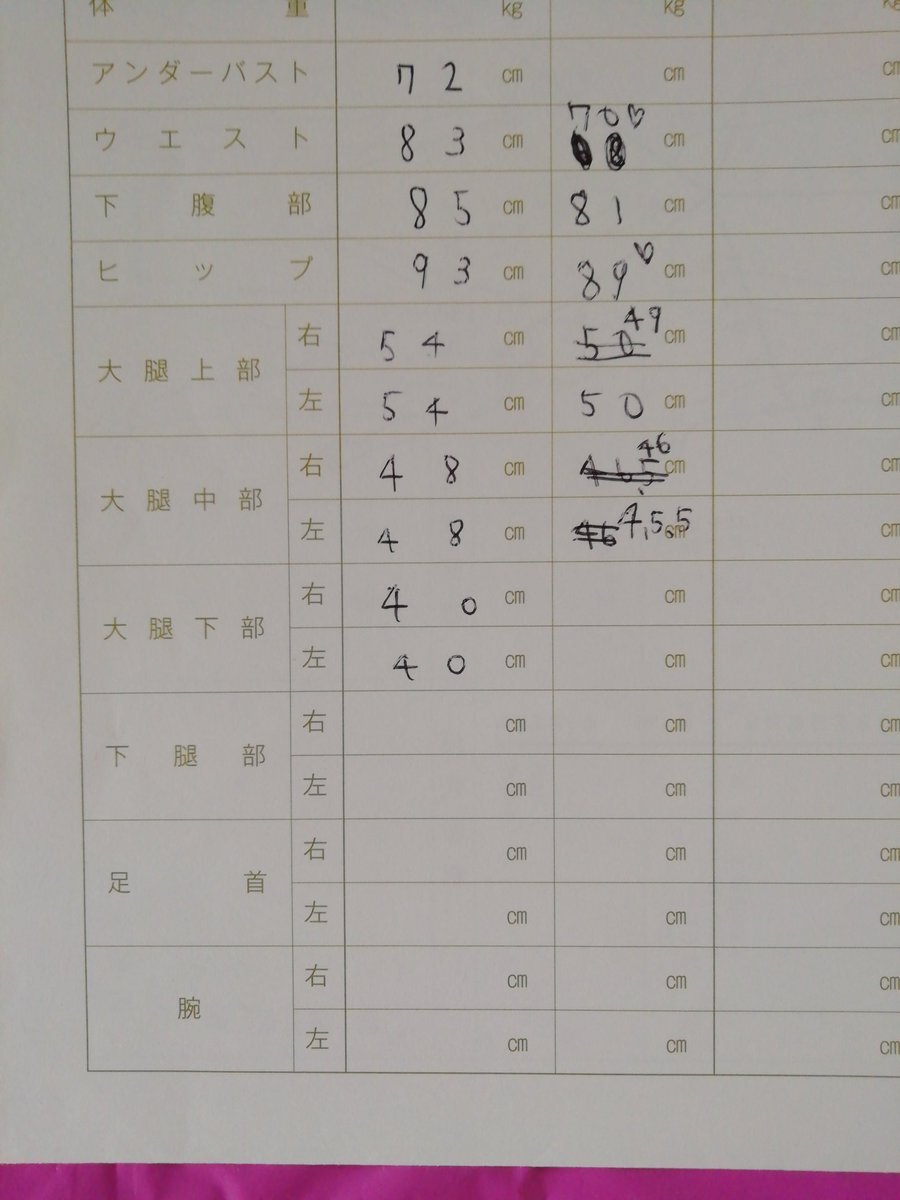 体重 kg kg kg
アンダーバスト 72 cm cm cm
ウエスト 83 cm 70♡ cm cm
下腹部 85 cm 81 cm cm
ヒップ 93 cm 89♡ cm cm
大腿上部 右 54 cm 50 49 cm cm
左 54 cm 50 cm cm
大腿中部 右 48 cm 46 cm cm
左 48 cm 46 45.5 cm cm
大腿下部 右 40 cm cm cm
左 40 cm cm cm
下腿部 右 cm cm cm
左 cm cm cm
足首 右 cm cm cm
左 cm cm cm
腕 右 cm cm cm
左 cm cm cm